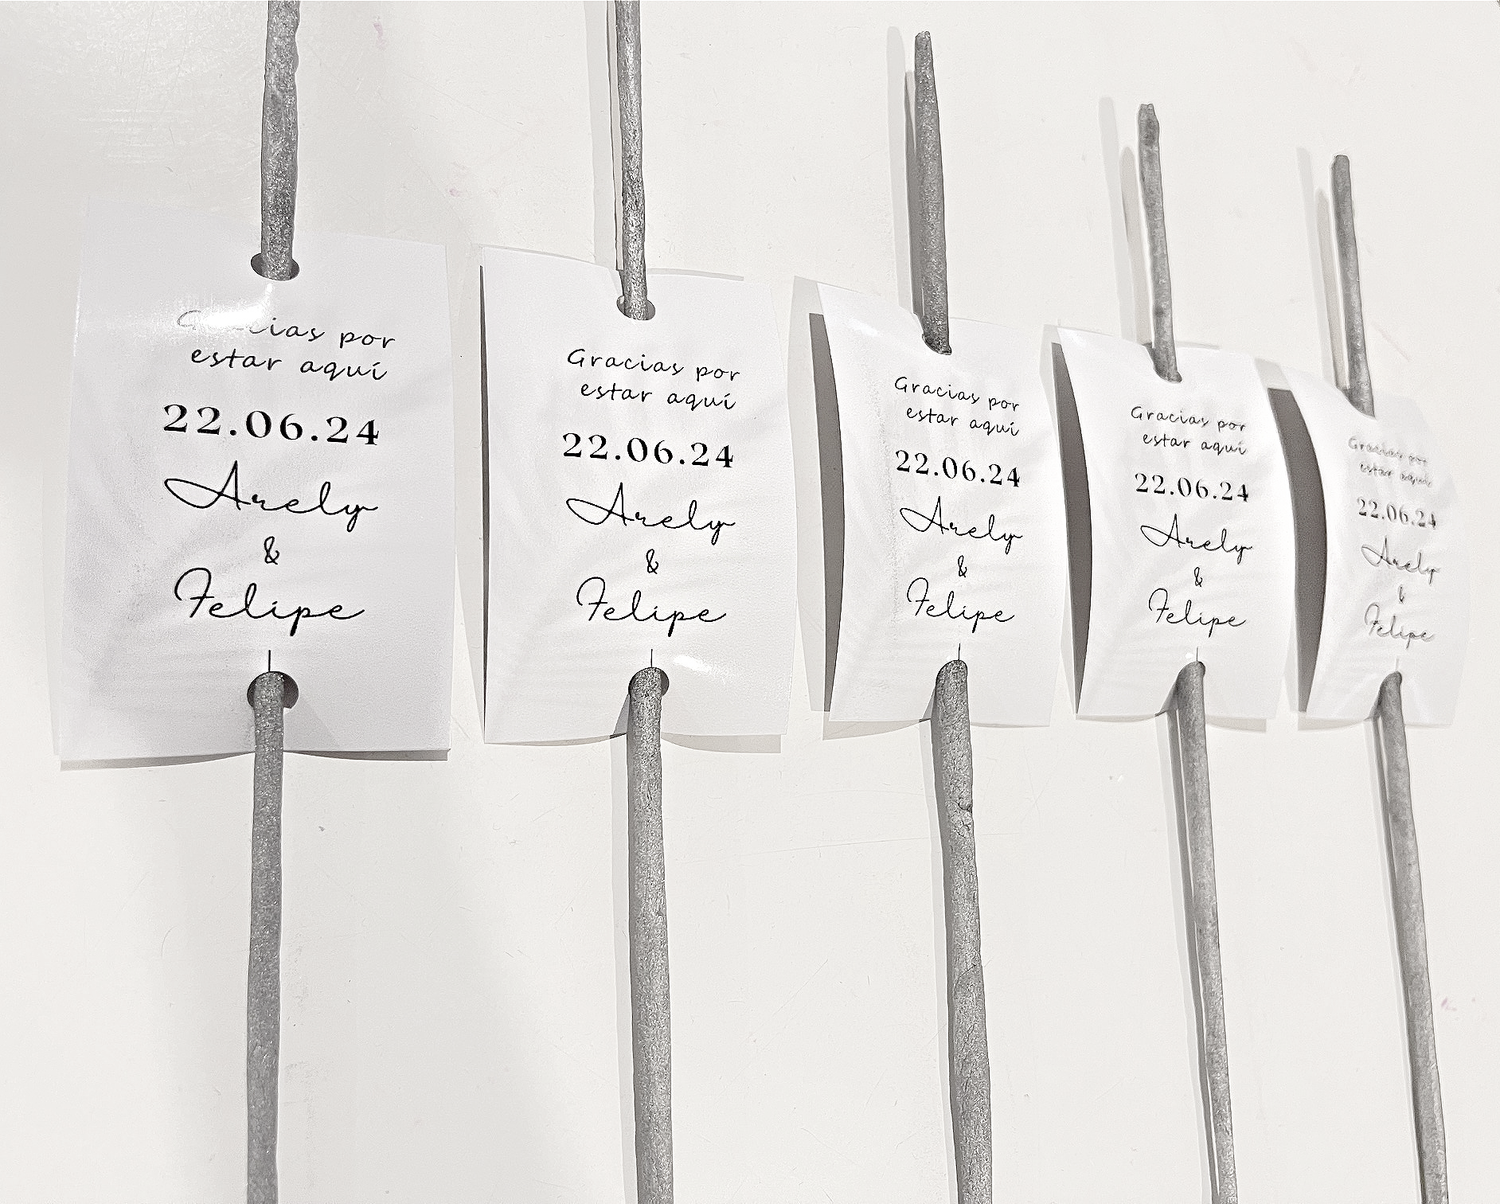 Gracias por
estar aquí
22.06.24
Arely
&
Felipe
Gracias por
estar aquí
22.06.24
Arely
&
Felipe
Gracias por
estar aquí
22.06.24
Arely
&
Felipe
Gracias por
estar aquí
22.06.24
Arely
&
Felipe
Gracias por
estar aquí
22.06.24
Arely
&
Felipe